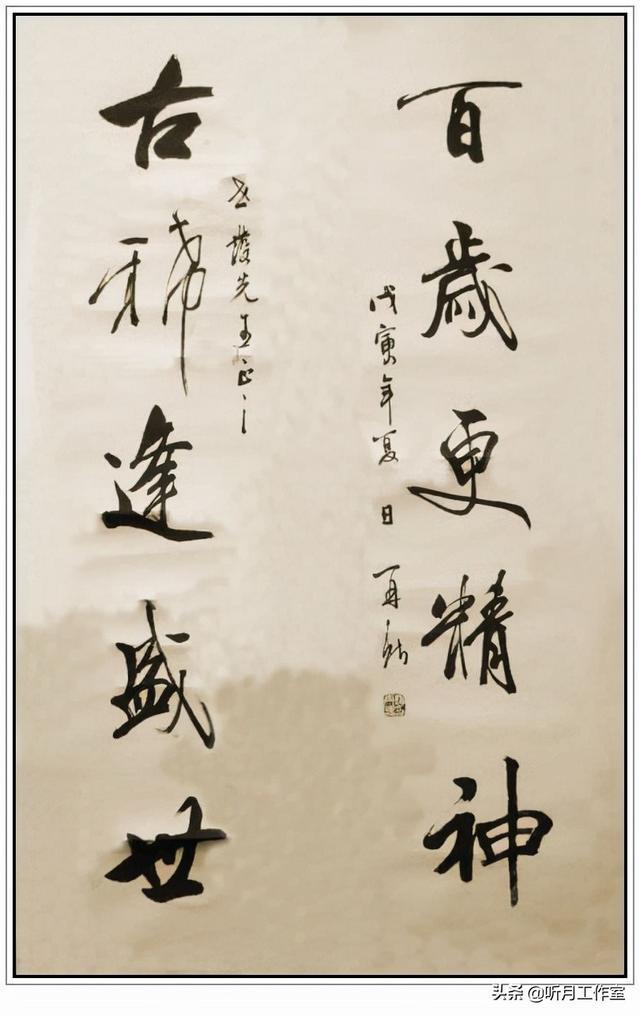 古稀逢盛世
先生正之
百歲更精神
戊寅年夏日 再
头条 @听月工作室